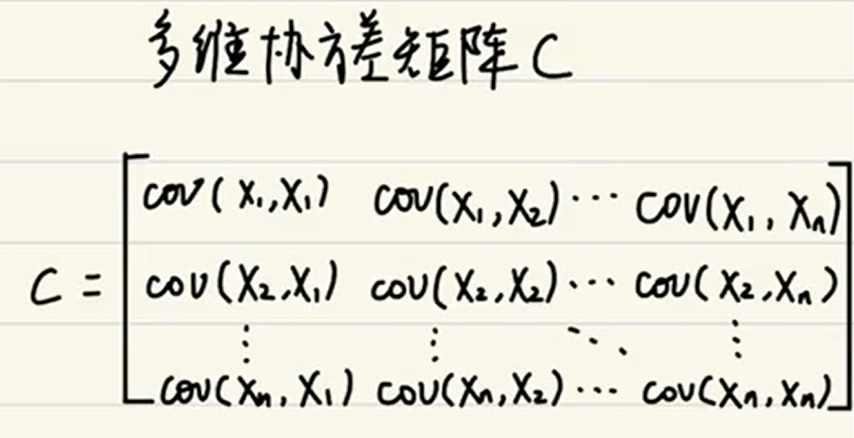 多维协方差矩阵 C
cov(X₁,X₁) cov(X₁,X₂) ··· cov(X₁,Xₙ)
C = cov(X₂,X₁) cov(X₂,X₂) ··· cov(X₂,Xₙ)
⋮ ⋮ ⋱ ⋮
cov(Xₙ,X₁) cov(Xₙ,X₂) ··· cov(Xₙ,Xₙ)